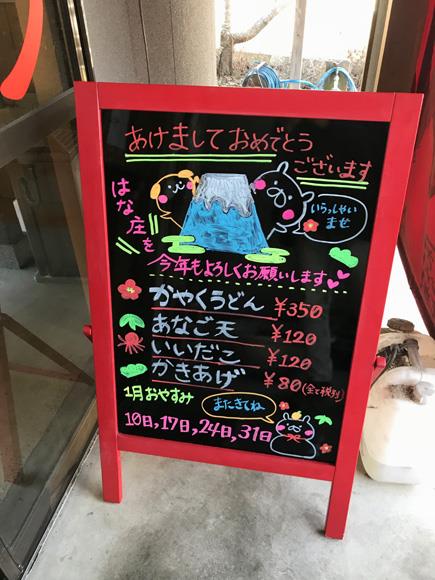 あけましておめでとう
ございます
いらっしゃい
ませ
はな庄を
今年もよろしくお願いします
かやくうどん ¥350
あなご天 ¥120
いいだこ ¥120
かきあげ ¥80(全て税別)
1月おやすみ
またきてね
10日,17日,24日,31日